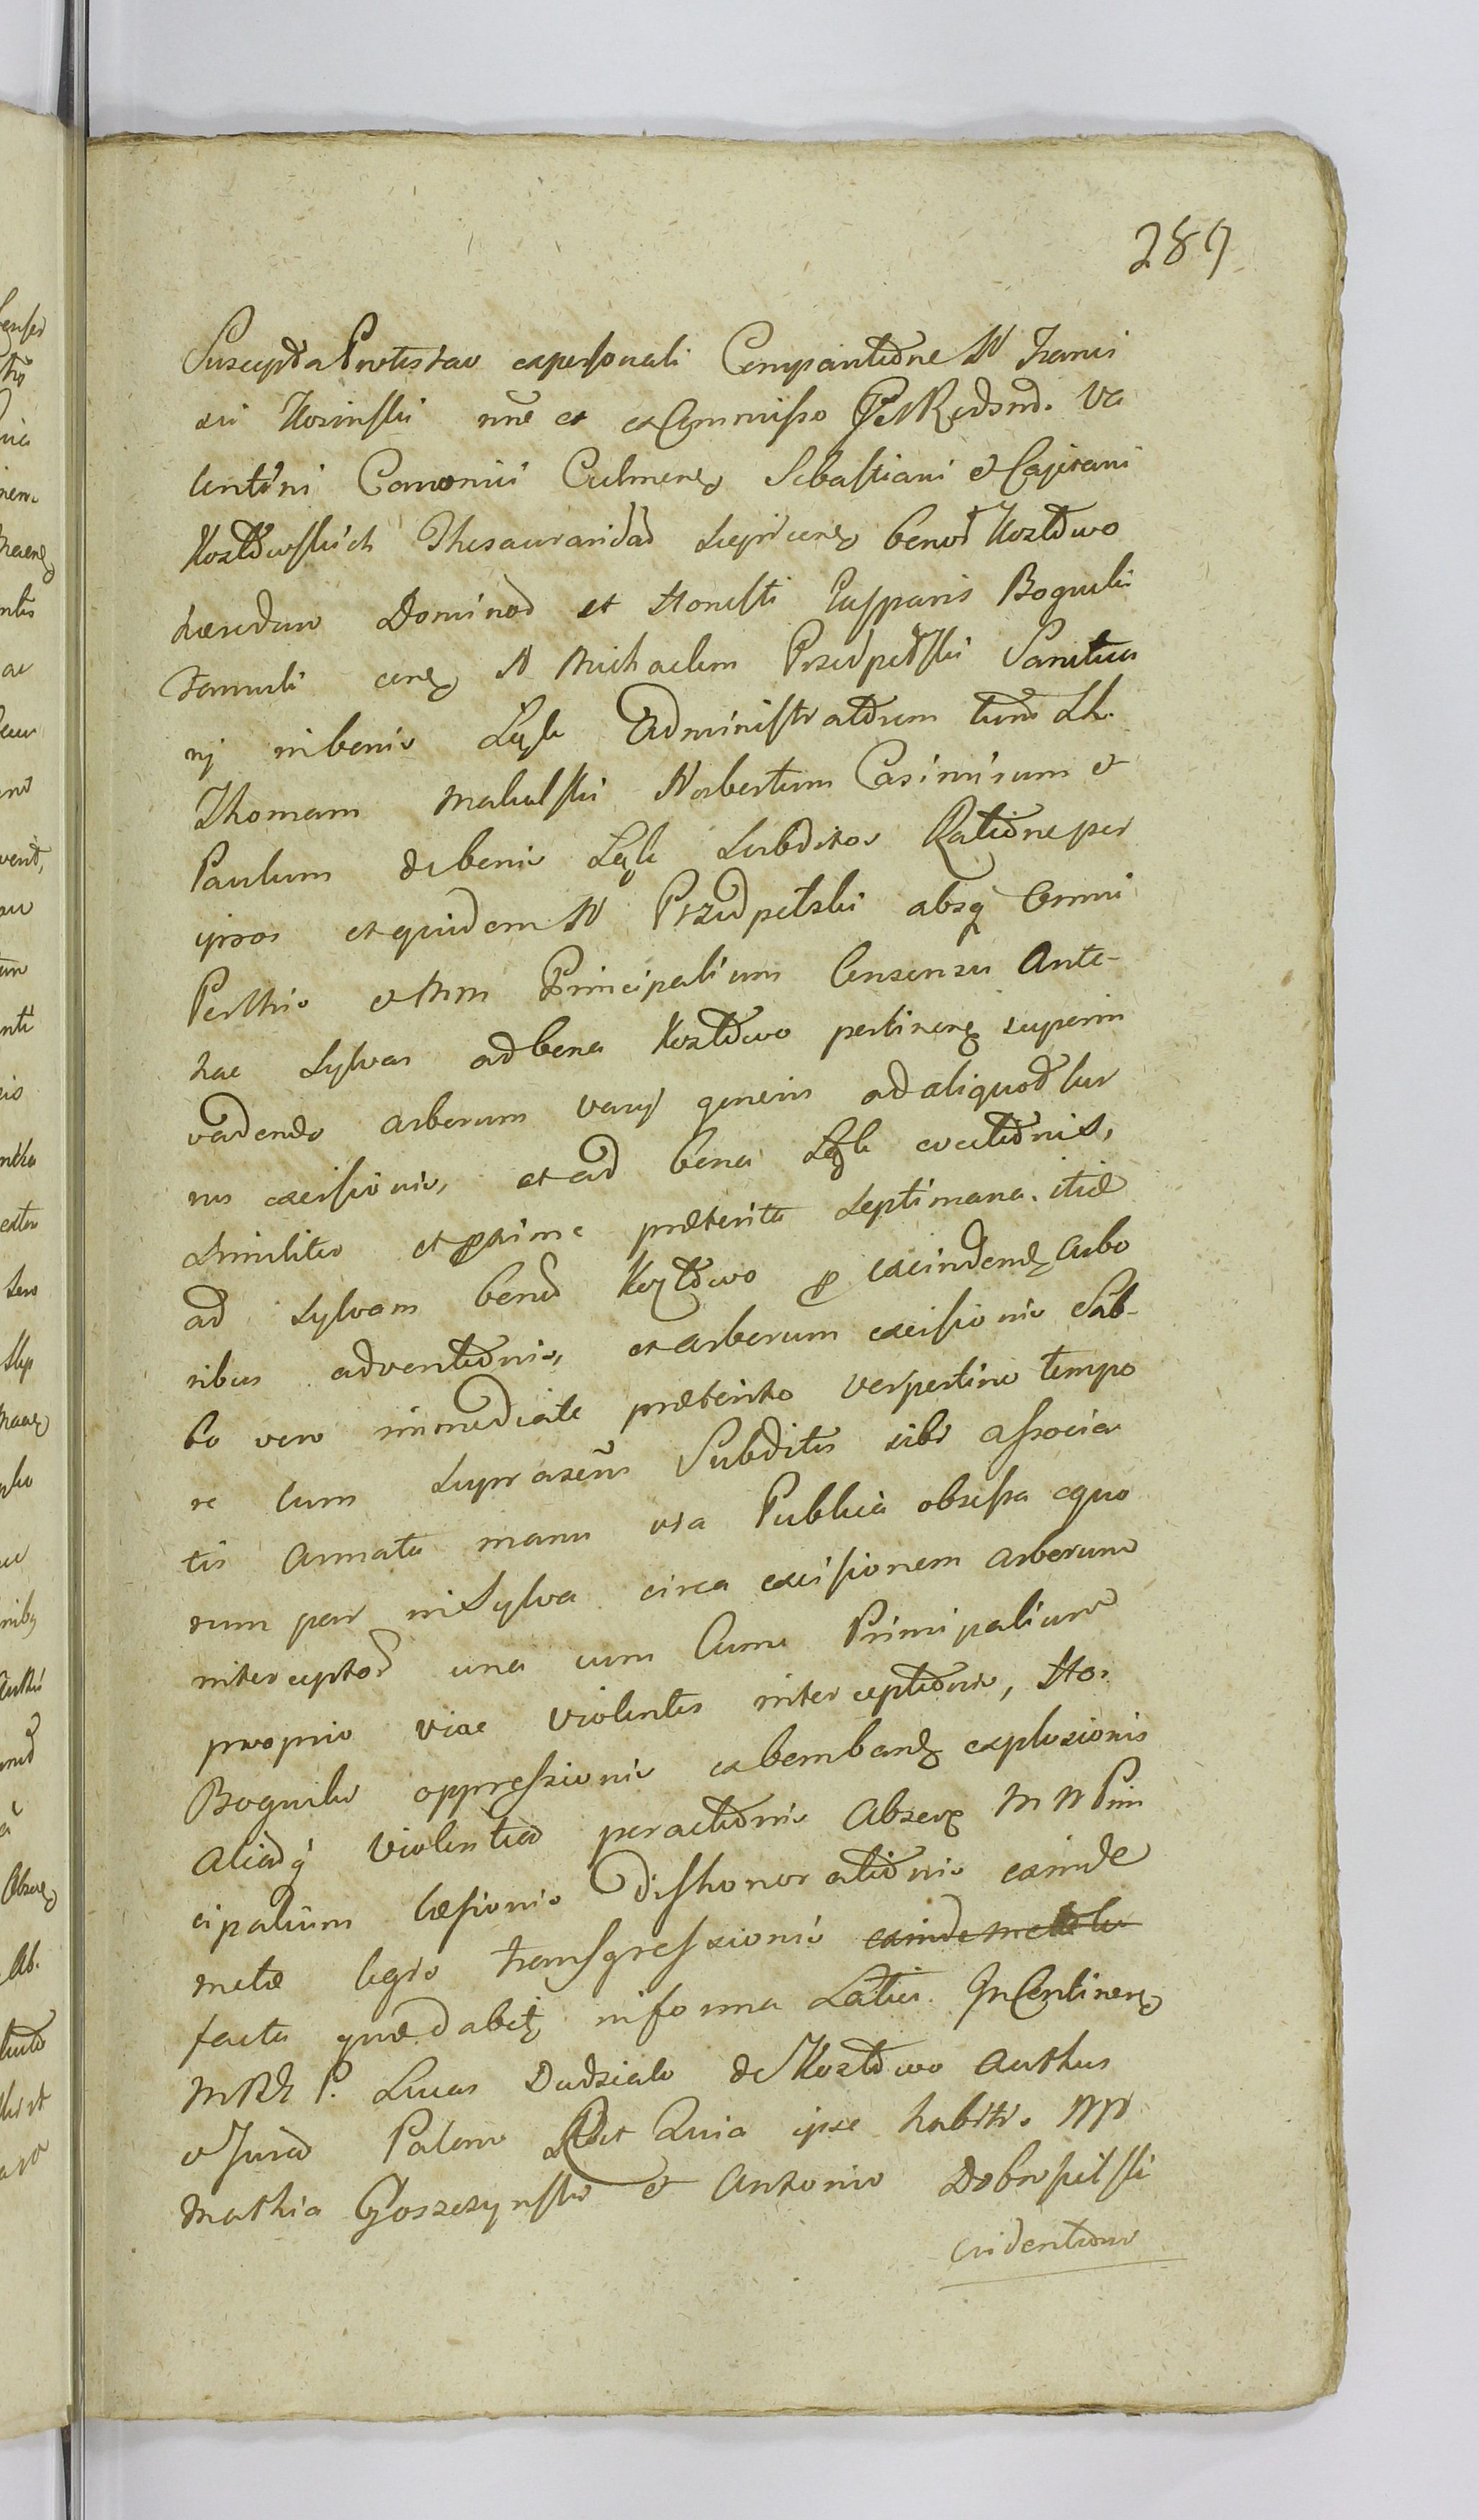 289
Suscepta Protestao ex personali Comparitione N Franci
sci Kosinski nne et ex Commisso Pet Rdsnd. Va
lentini Canonici Culmens Sebastiani et Cajetani
Kozłowskich Thesauraridar Lipnens bonor Kozłowo
hæredum Dominor et Honesti Casparis Bogucki
Famuli cons N Michaelem Przedpełski
nj in bonis Administratorem tum LL.
Thomam Makulski Norbertum Casimirum et
Paulum de bonis subditos Ratione per
ipsos et quidem N Przedpelski absq omni
et Mm Principalium Consensu Ante-
hac Sylvas ad bona Kozłowo pertinens superin
vadendo arborum varij generis ad aliquod cur
rus excisionis, et ad bona evectionis,
Similiter et pxime præterita Septimana itid
ad Sylvam bonor Kozłowo p excindend arbo
ribus adventionis, et arborum excisionis Sab-
bo vero immediate præterito vespertino tempo
re cum suprascris Subditis sibi associa
tis armata manu via Publica obsessa equo
rum par in Sylva circa excisionem arborum
interceptor una cum Curru Principalium
proprio viæ violentis interceptionis, Ho.
Bogucki oppressionis ex bombard explosionis
aliarq violentiar peractionis absens M N Prin
cipalium læsionis dishonorationis exinde
metæ legis transgressionis
facta quæ dabit in forma Latiu. In Continens
P. Lucas Dudziak de Kozłowo authus
et Jurad Palam Rlt Quia ipse habitis NN
Mathia Goszczynski et Antonio Dobrosielski
evidentiorem